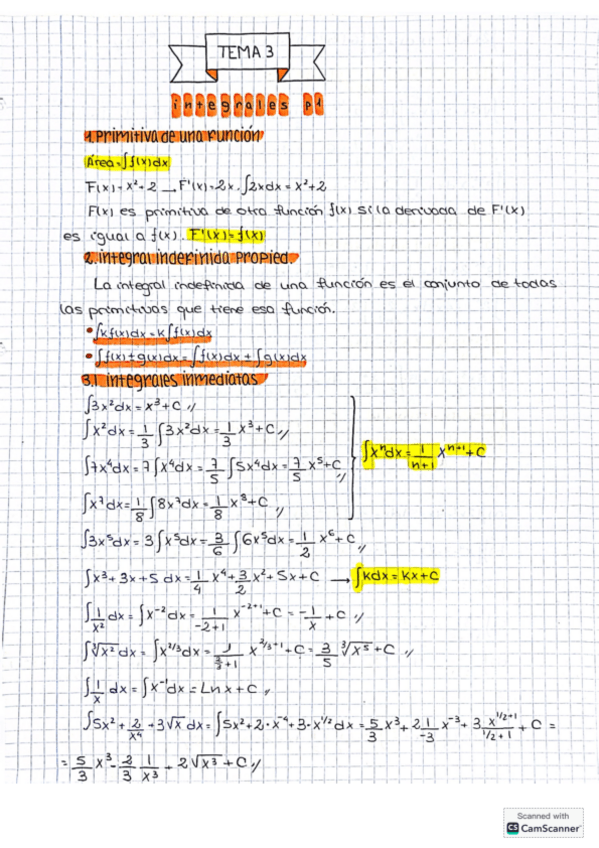 TEMA 3
integrales p1
1. Primitiva de una función
Área = ∫f(x)dx
F(x) = x²+2 → F'(x) = 2x. ∫2xdx = x²+2
F(x) es primitiva de otra función f(x) si la derivada de F'(x)
es igual a f(x). F'(x) = f(x)
2. integral indefinida propied.
La integral indefinida de una función es el conjunto de todas
las primitivas que tiene esa función.
• ∫kf(x)dx = k∫f(x)dx
• ∫f(x)±g(x)dx = ∫f(x)dx ± ∫g(x)dx
3.1 integrales inmediatas
∫3x²dx = x³+C //
∫x²dx = 1/3 ∫3x²dx = 1/3 x³+C //
∫x^n dx = 1/(n+1) x^(n+1) + C
∫7x⁴dx = 7∫x⁴dx = 7/5 ∫5x⁴dx = 7/5 x⁵+C //
∫x⁷dx = 1/8 ∫8x⁷dx = 1/8 x⁸+C //
∫3x⁵dx = 3∫x⁵dx = 3/6 ∫6x⁵dx = 1/2 x⁶+C //
∫x³+3x+5 dx = 1/4 x⁴ + 3/2 x² + 5x + C → ∫kdx = kx+C
∫1/x² dx = ∫x⁻²dx = 1/(-2+1) x^(-2+1) + C = -1/x + C //
∫∛x² dx = ∫x^(2/3)dx = 1/(2/3+1) x^(2/3+1) + C = 3/5 ∛x⁵ + C //
∫1/x dx = ∫x⁻¹dx = Ln x + C //
∫5x² + 2/x⁴ + 3√x dx = ∫5x²+2·x⁻⁴+3·x^(1/2) dx = 5/3 x³ + 2 1/-3 x⁻³ + 3 x^(1/2+1)/(1/2+1) + C =
= 5/3 x³ - 2/3 1/x³ + 2√x³ + C //
Scanned with
CS CamScanner